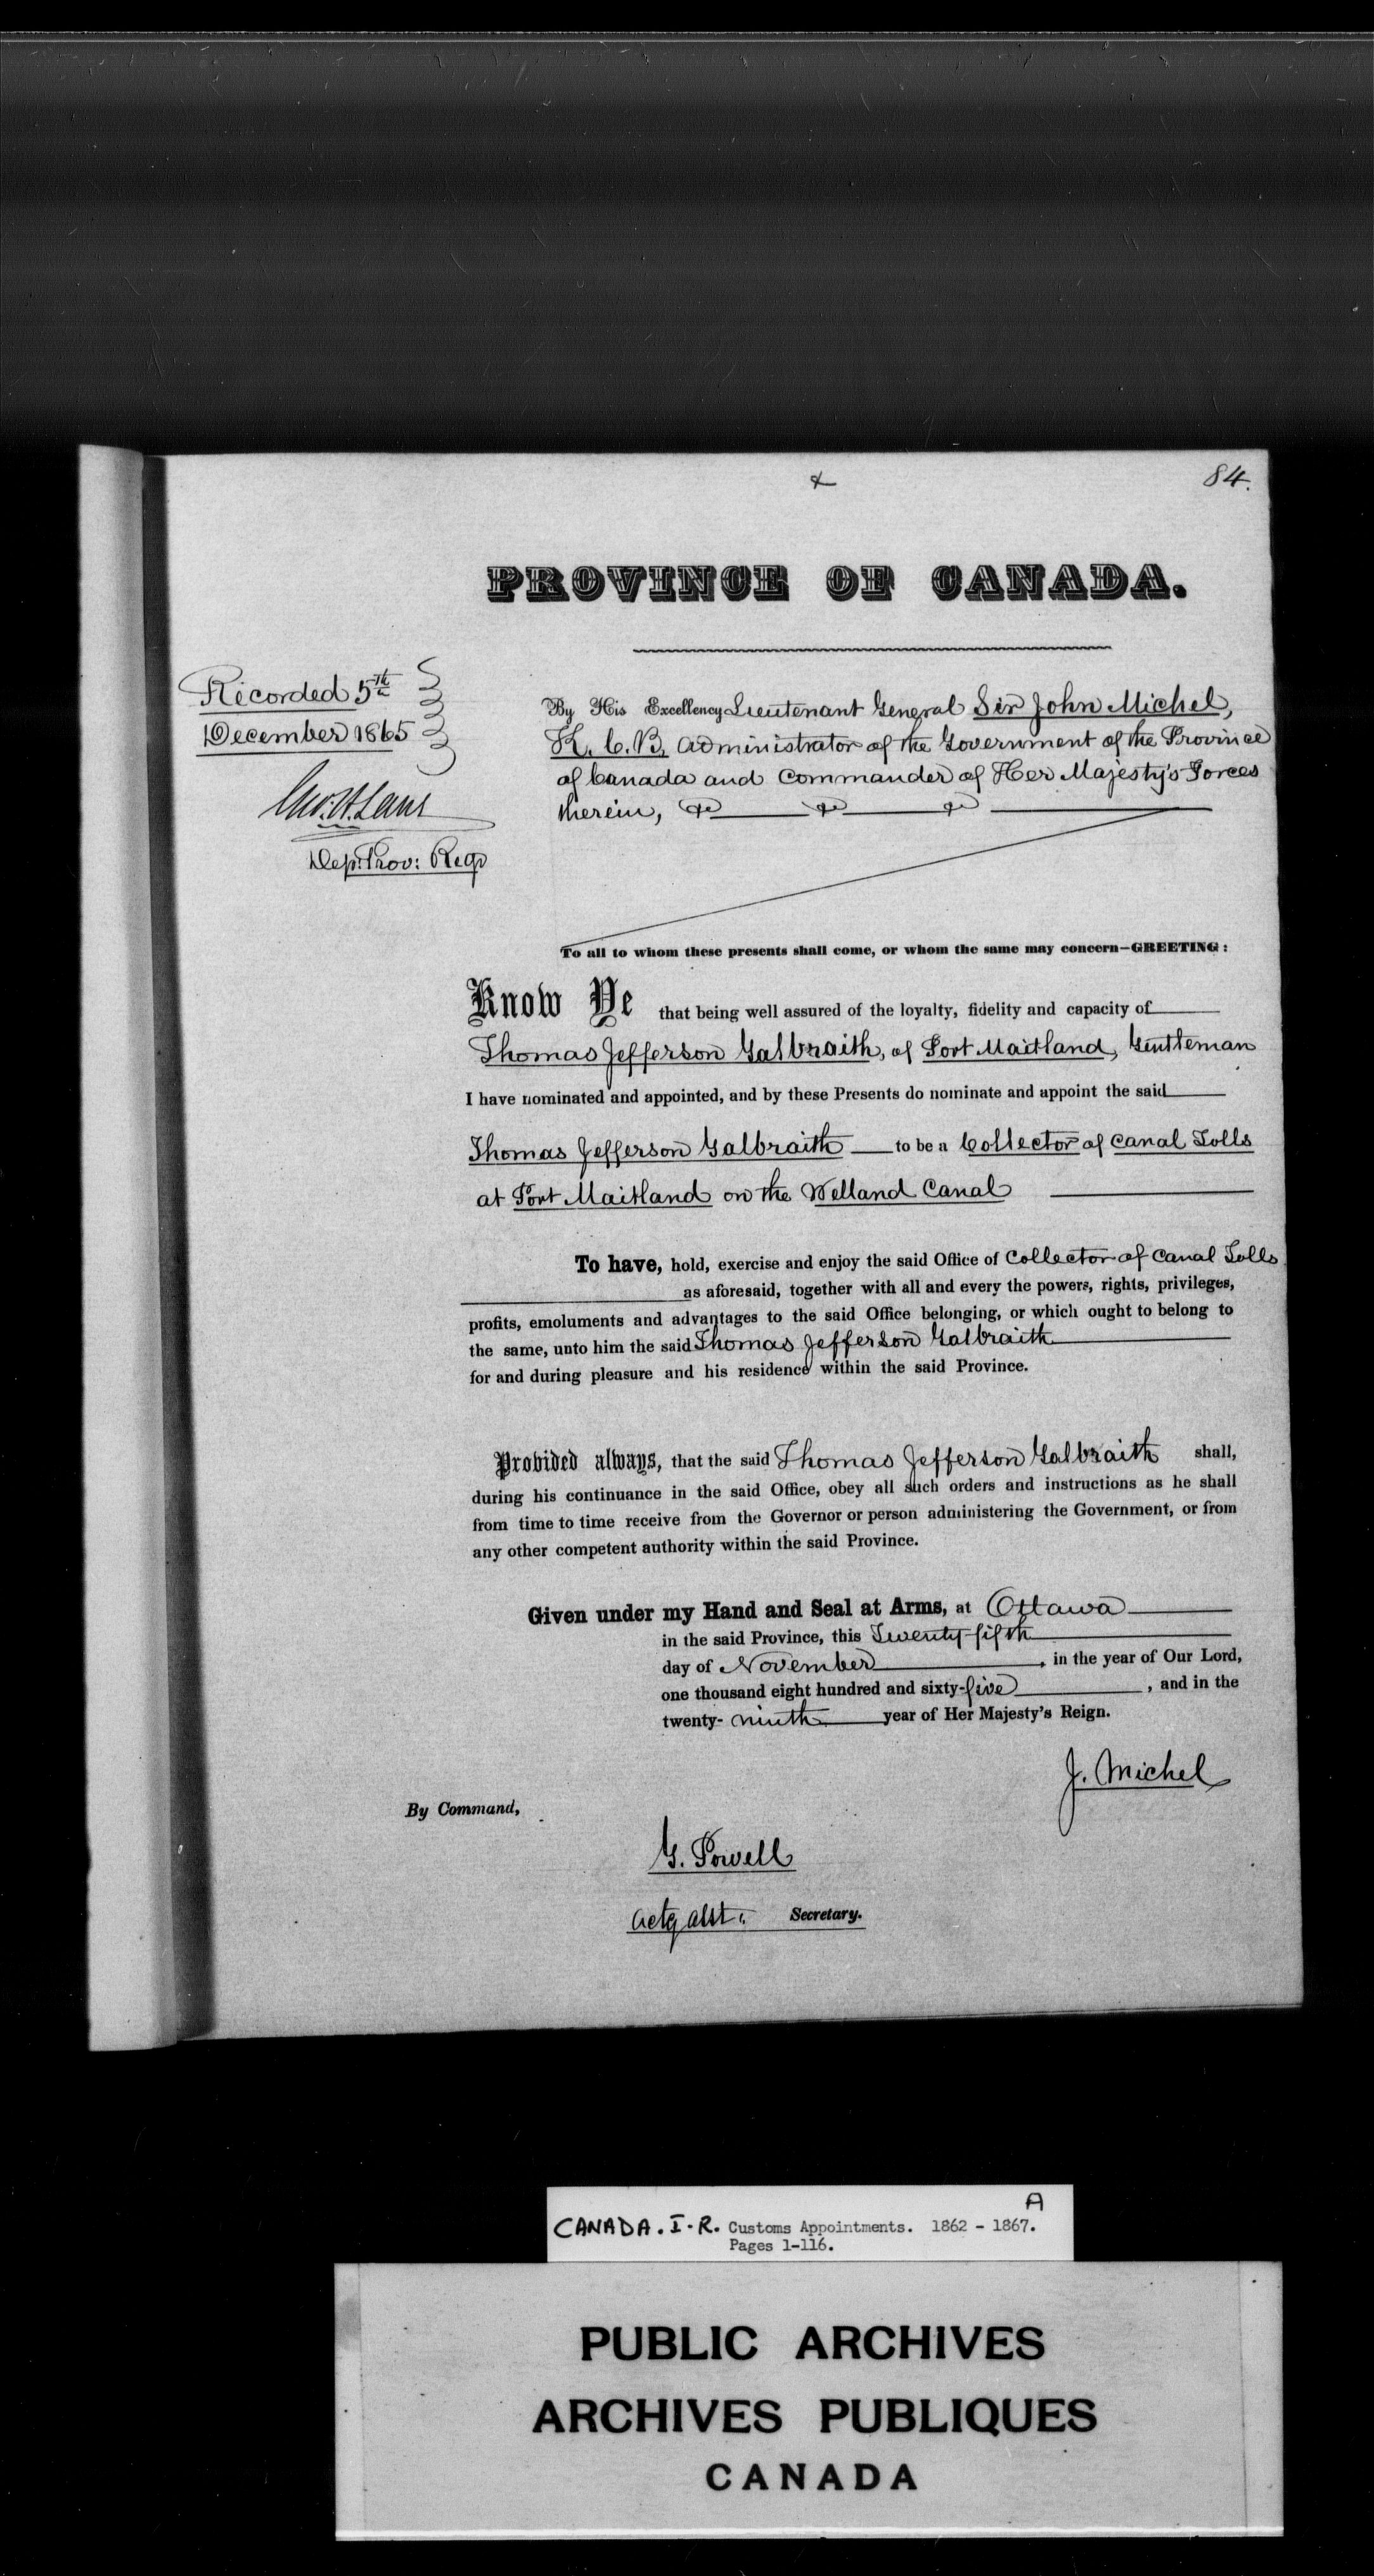 84.
PROVINCE OF CANADA.
Recorded 5th
December 1865
Geo. H. Lane
Dep: Prov: Regr
By His Excellency Lieutenant General Sir John Michel,
K. C. B, Administrator of the Government of the Province
of Canada and Commander of Her Majesty's Forces
therein, &c &c &c
To all to whom these presents shall come, or whom the same may concern—GREETING:
Know Ye that being well assured of the loyalty, fidelity and capacity of
Thomas Jefferson Galbraith, of Port Maitland, Gentleman
I have nominated and appointed, and by these Presents do nominate and appoint the said
Thomas Jefferson Galbraith to be a Collector of Canal Tolls
at Port Maitland on the Welland Canal
To have, hold, exercise and enjoy the said Office of Collector of Canal Tolls
as aforesaid, together with all and every the powers, rights, privileges,
profits, emoluments and advantages to the said Office belonging, or which ought to belong to
the same, unto him the said Thomas Jefferson Galbraith
for and during pleasure and his residence within the said Province.
Provided always, that the said Thomas Jefferson Galbraith shall,
during his continuance in the said Office, obey all such orders and instructions as he shall
from time to time receive from the Governor or person administering the Government, or from
any other competent authority within the said Province.
Given under my Hand and Seal at Arms, at Ottawa
in the said Province, this Twenty-fifth
day of November, in the year of Our Lord,
one thousand eight hundred and sixty-five, and in the
twenty-ninth year of Her Majesty's Reign.
J. Michel
By Command,
G. Powell
Actg Asst. Secretary.
A
CANADA. I. R. Customs Appointments. 1862 - 1867.
Pages 1-116.
PUBLIC ARCHIVES
ARCHIVES PUBLIQUES
CANADA